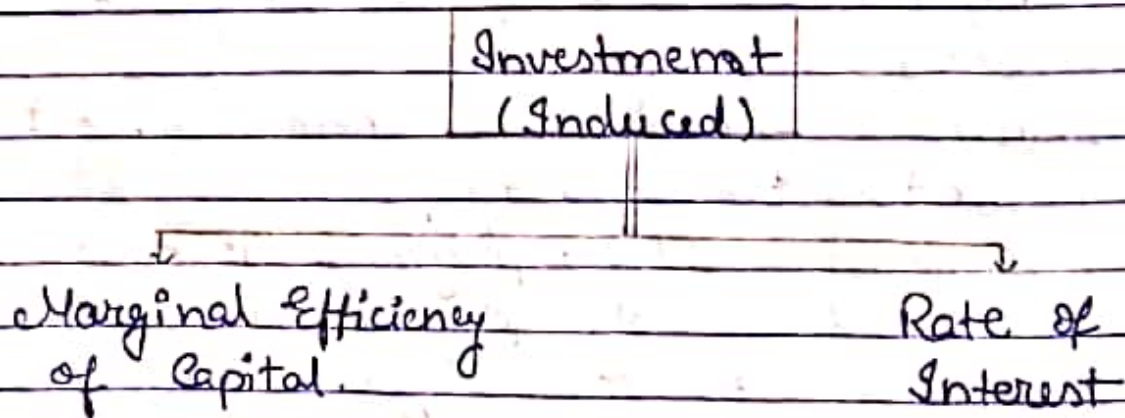 Investmemat
(Induced)
Marginal Efficiency
of Capital.
Rate of
Interest